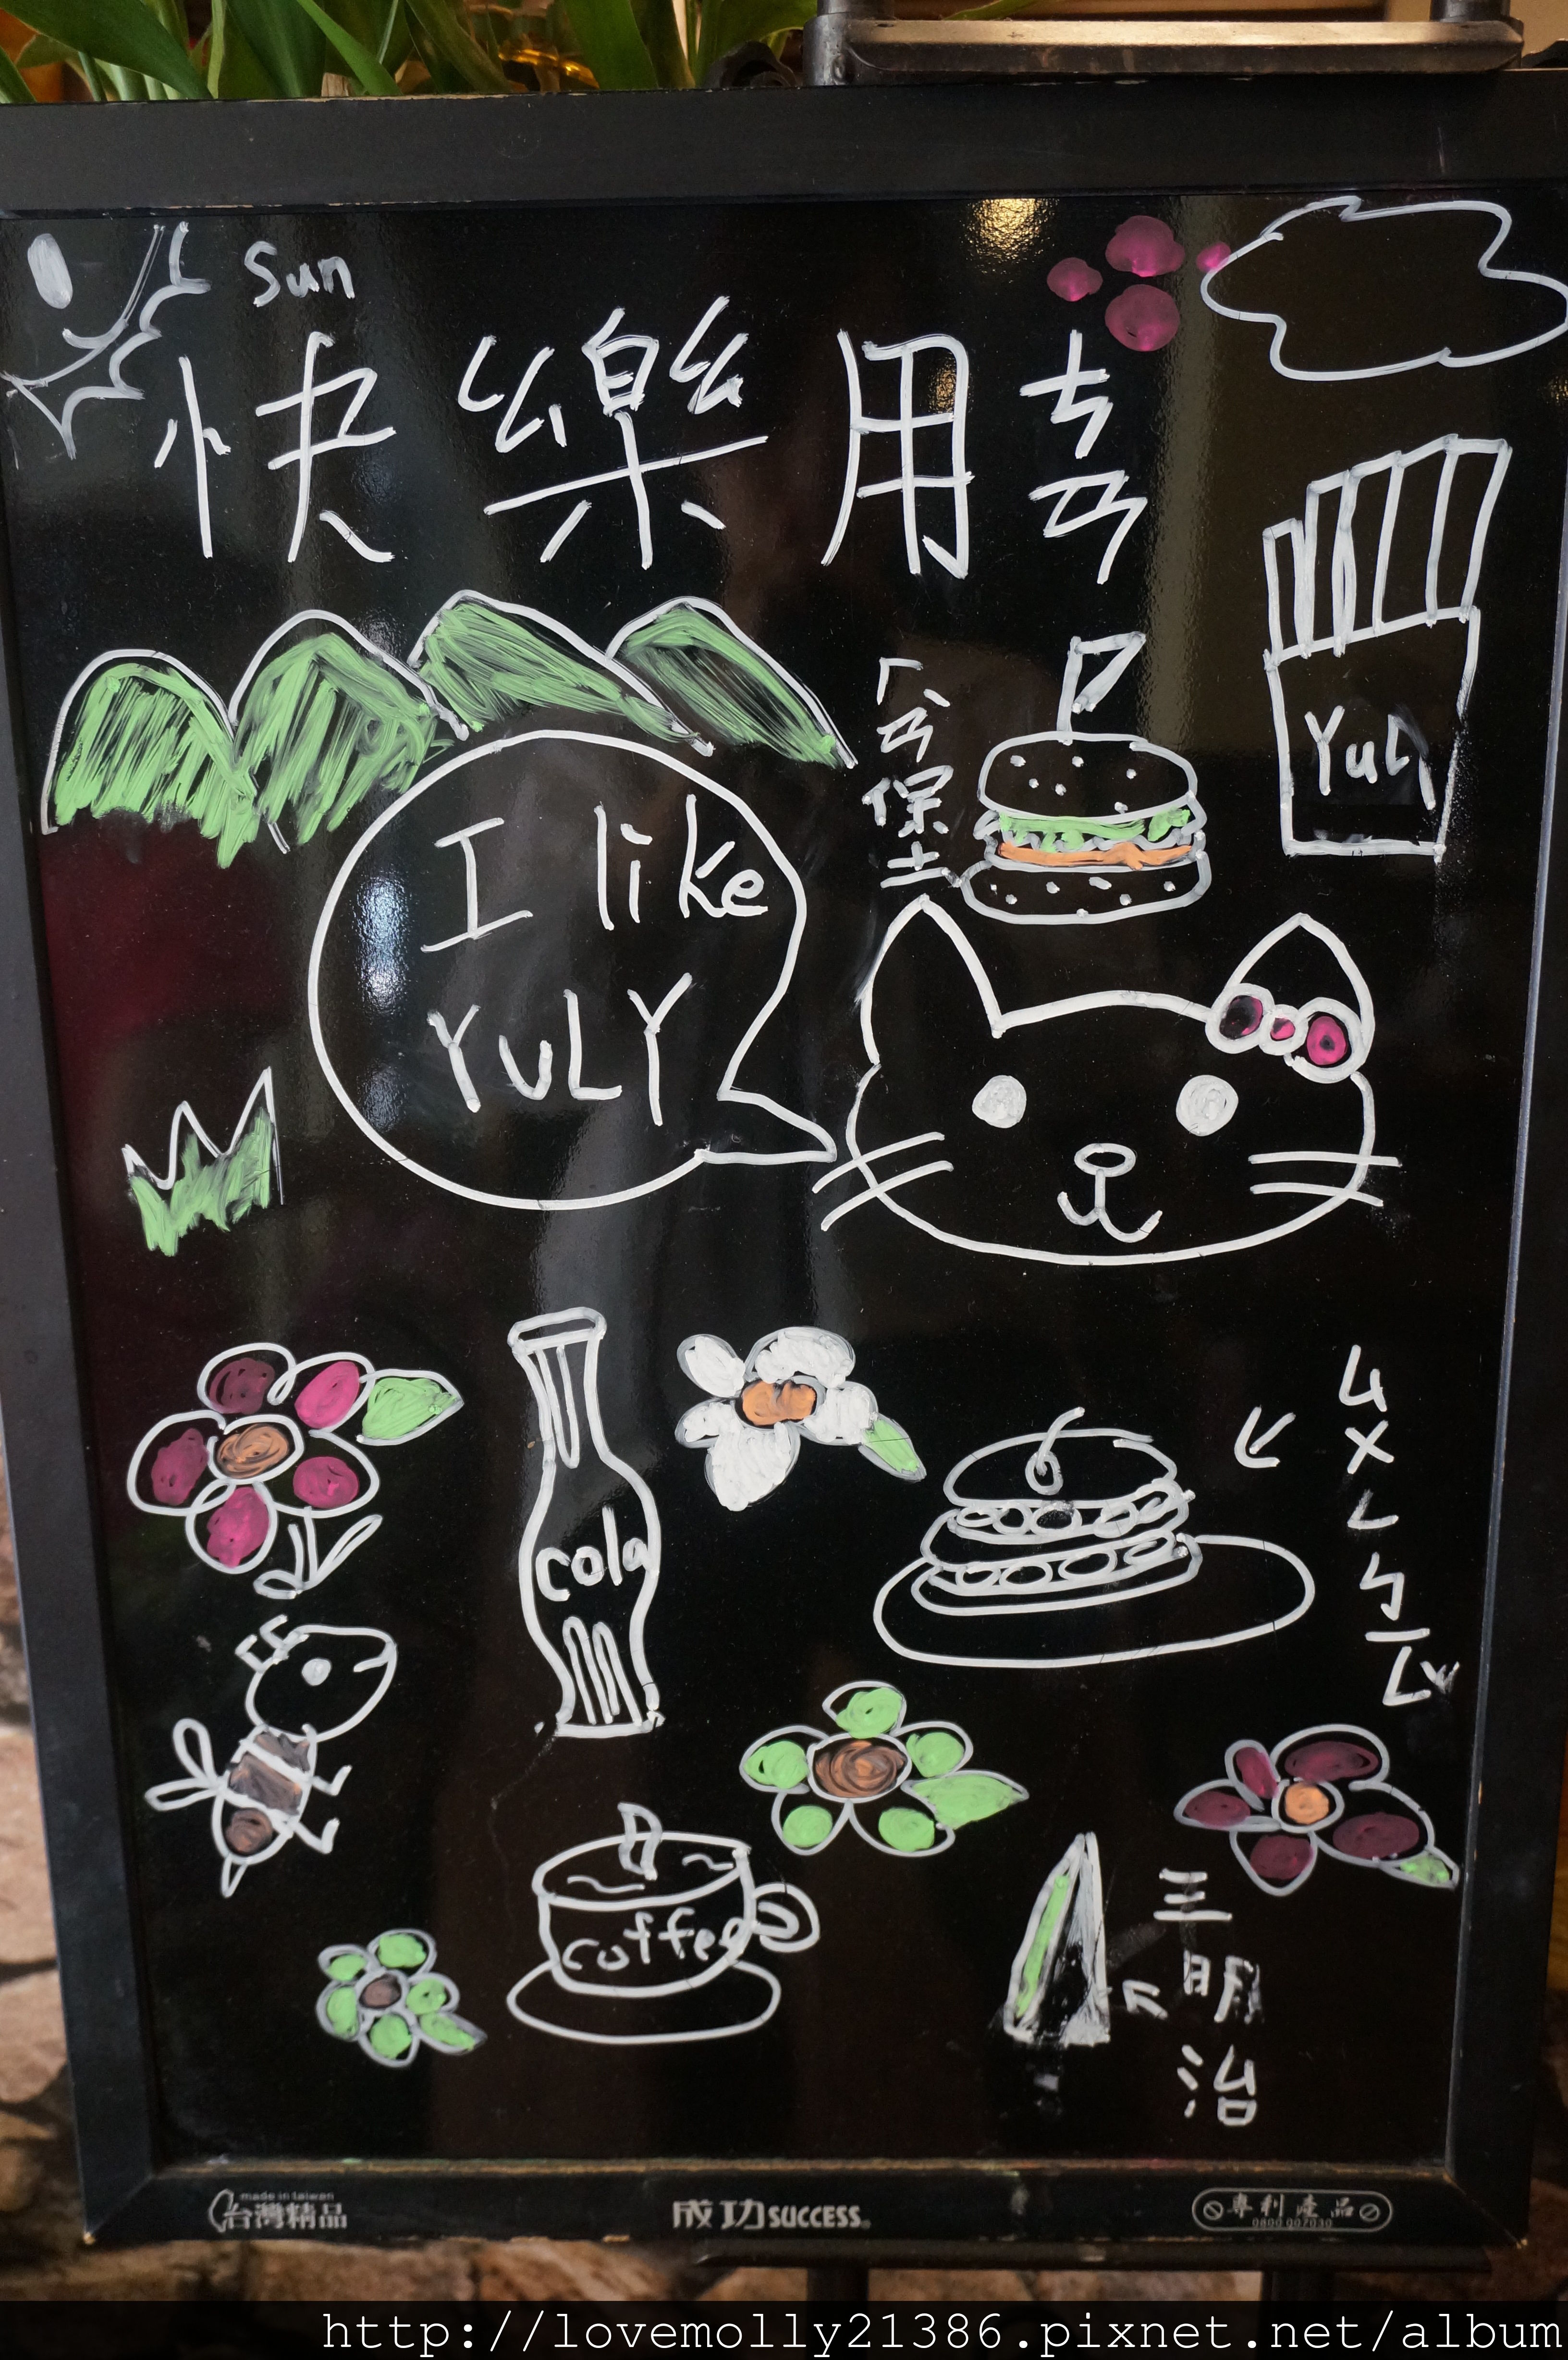 Sun
快樂用ㄘㄢ
YuLy
ㄏㄢˋ堡
I like
YuLY
ㄙㄨㄥ
ㄅㄧㄥˇ
cola
coffee
三明治
made in taiwan
台灣精品
成功SUCCESS®
專利產品
0800 007030
http://lovemolly21386.pixnet.net/album